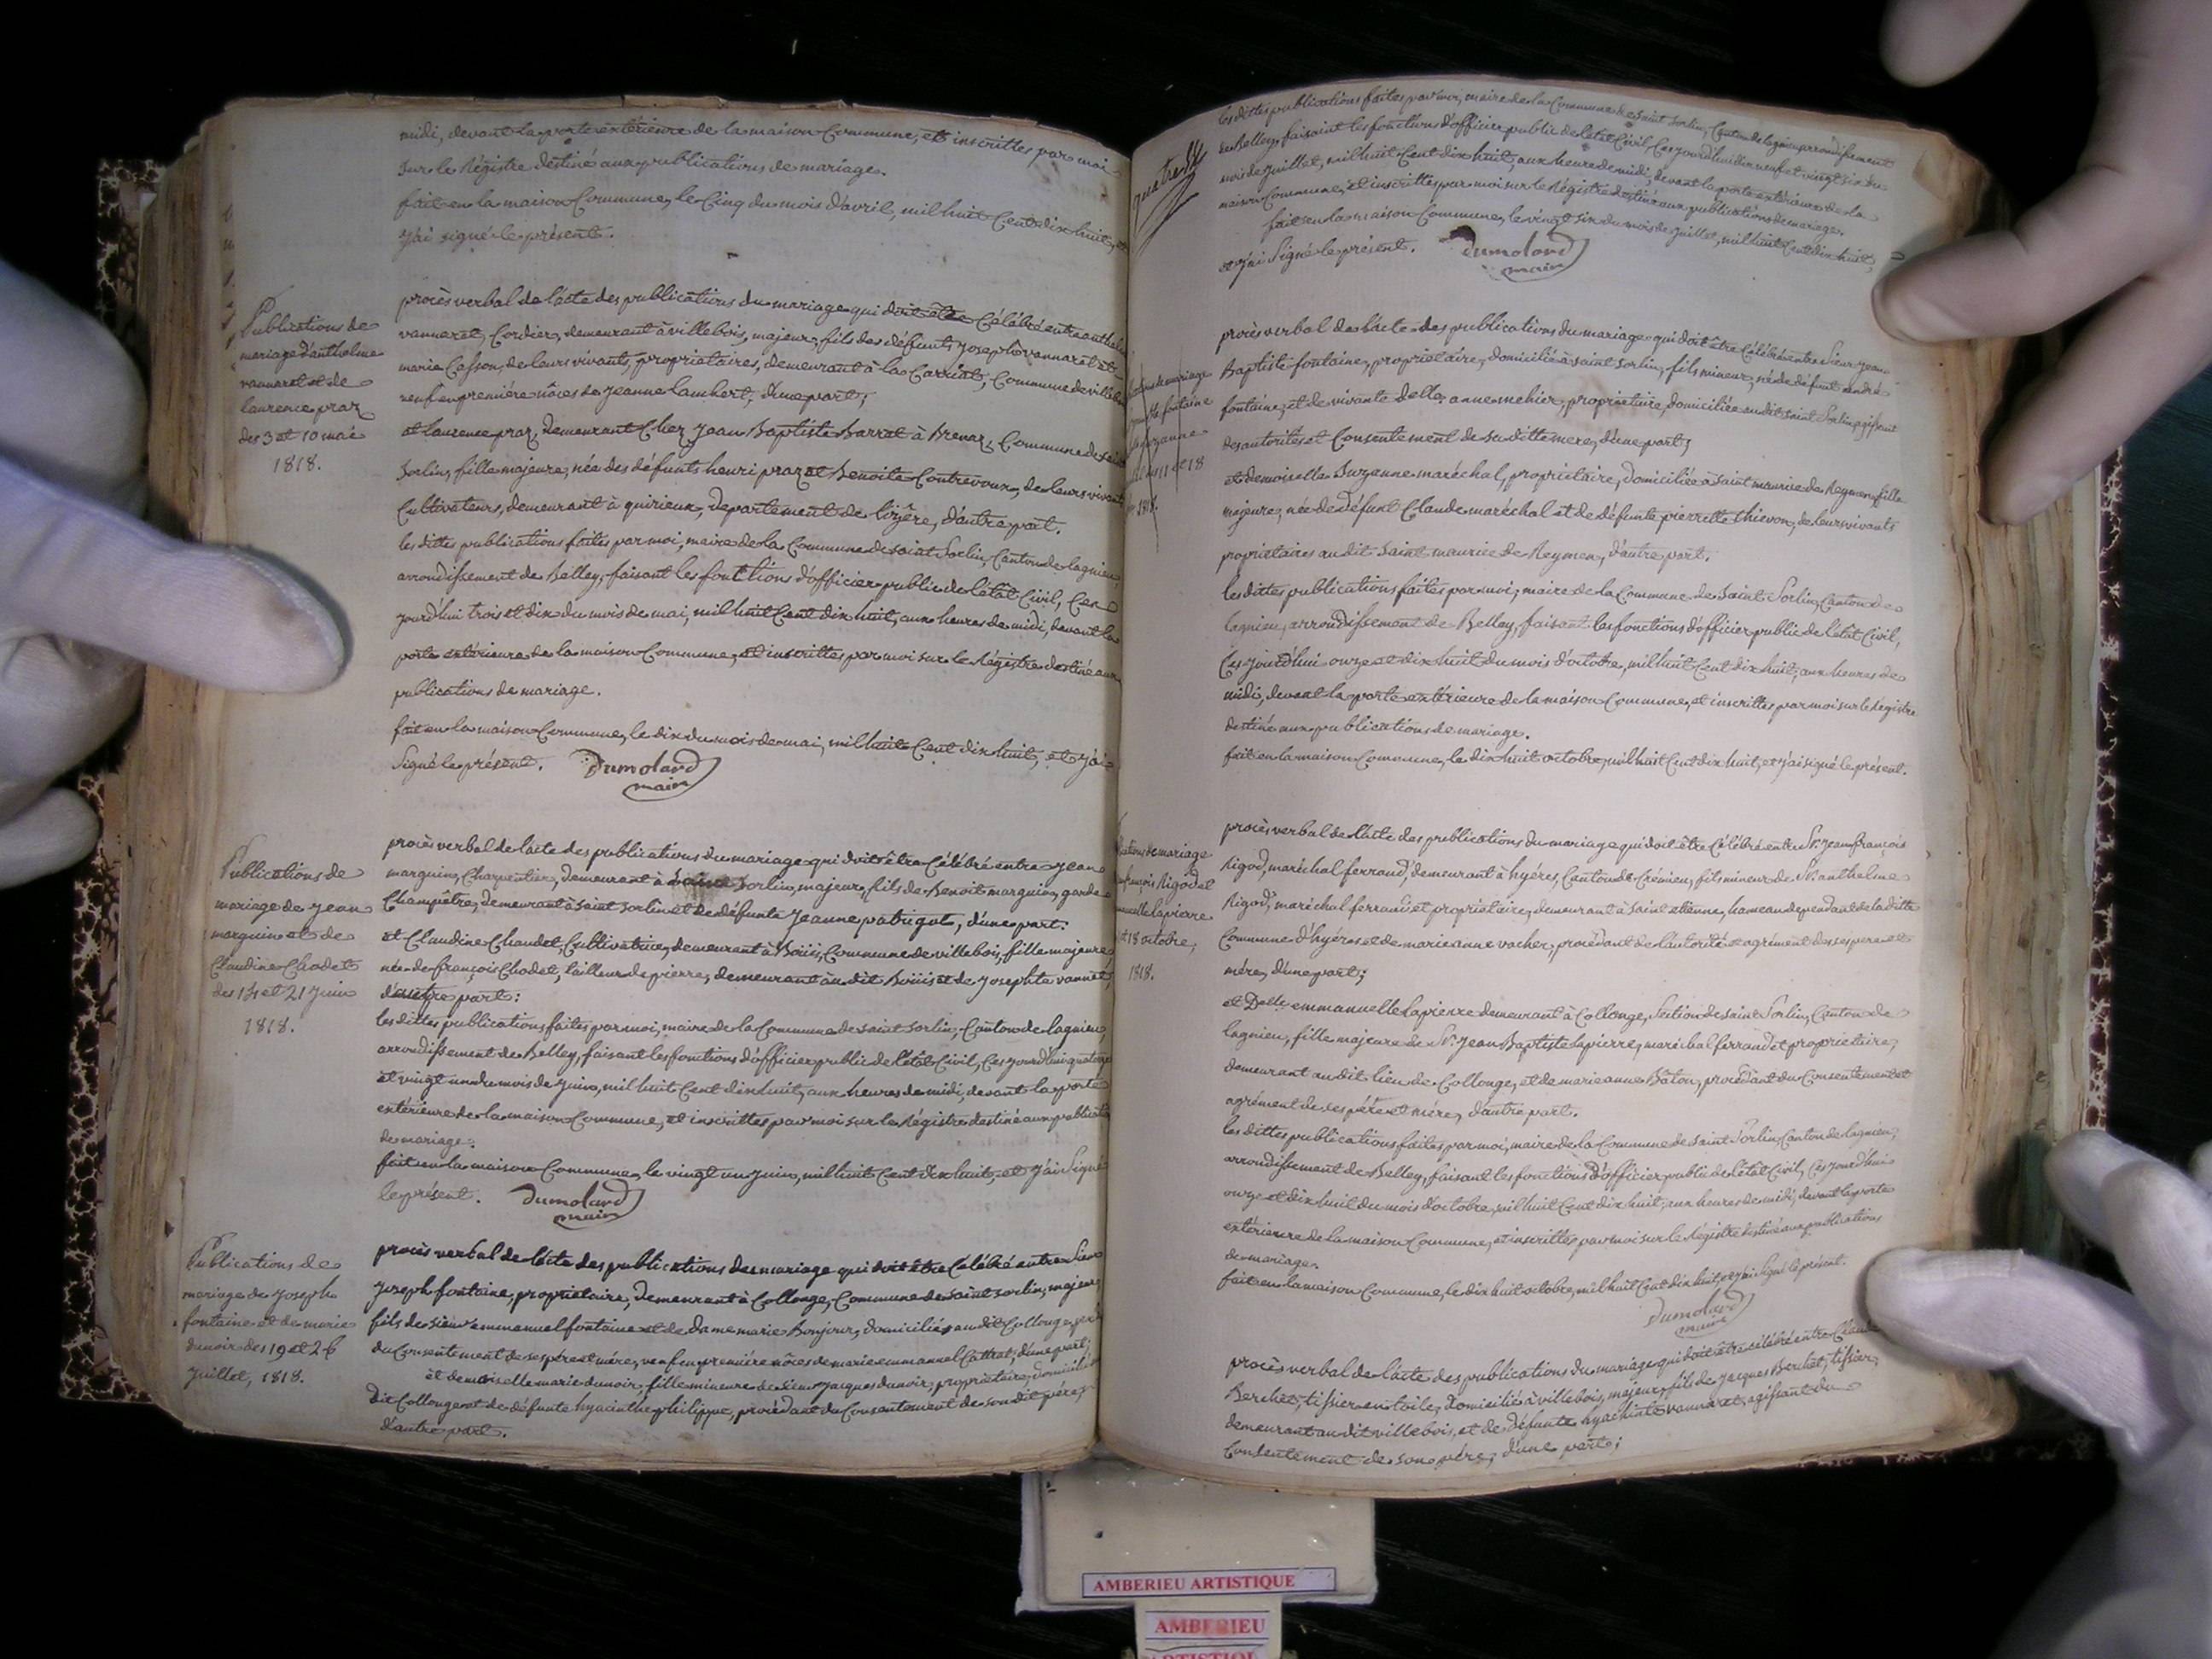 midi, devant la porte extérieure de la maison Commune, et inscrittes par moi
sur le Régistre destiné aux publications de mariage.
fait en la maison Commune, le Cinq du mois d'avril, mil huit Cent dix huit, et
j'ai signé le présent.
Publications de
mariage d'anthelme
vannaret et de
laurence praz
des 3 et 10 mai
1818.
procès verbal de l'acte des publications du mariage qui doit être Célébré entre anthelme
vannaret, Cordier, demeurant à villebois, majeur, fils des défunts joseph vannaret et
marie Casson, de leurs vivants, propriétaires, demeurant à la Carriat, Commune de villebois
veuf en première nôces de jeanne lambert, d'une part;
et laurence praz, demeurant Chez jean Baptiste Barrat à Brenaz, Commune de saint
Sorlin, fille majeure, née des défunts henri praz et Benoite Contrevoux, de leurs vivants
Cultivateurs, demeurant à quirieux, departement de l'izère, d'autre part.
les dittes publications faites par moi, maire de la Commune de saint Sorlin, Canton de lagnieu,
arrondissement de Belley, faisant les fonctions d'officier public de l'état Civil, Ces
jourd'hui trois et dix du mois de mai, mil huit Cent dix huit, aux heures de midi, devant la
porte extérieure de la maison Commune, et inscrittes par moi sur le Régistre destiné aux
publications de mariage.
fait en la maison Commune, le dix du mois de mai, mil huit Cent dix huit, et j'ai
Signé le présent. Dumolard
maire
Publications de
mariage de jean
marguin et de
Claudine Chodet
des 14 et 21 juin
1818.
procès verbal de l'acte des publications du mariage qui doit être Célébré entre jean
marguin, Charpentier, demeurant à saint Sorlin, majeur, fils de Benoit marguin, garde
Champêtre, demeurant à saint sorlin et de défunte jeanne patrigot, d'une part.
et Claudine Chaudet, Cultivatrice, demeurant à Bouis, Commune de villebois, fille majeure,
née de françois Chodet, tailleur de pierre, demeurant au dit Bouis et de josephte vannet,
d'autre part:
les dittes publications faites par moi, maire de la Commune de saint Sorlin, Canton de lagnieu,
arrondissement de Belley, faisant les fonctions d'officier public de l'état Civil, Ces jourd'hui quatorze
et vingt un du mois de juin, mil huit Cent dix huit, aux heures de midi, devant la porte
extérieure de la maison Commune, et inscrittes par moi sur le Régistre destiné aux publications
de mariage.
fait en la maison Commune, le vingt un juin, mil huit Cent dix huit, et j'ai Signé
le présent. Dumolard
maire
Publications de
mariage de joseph
fontaine et de marie
dunoir des 19 et 26
juillet, 1818.
procès verbal de l'acte des publications de mariage qui doit être Célébré entre Sieur
joseph fontaine, propriétaire, demeurant à Collonge, Commune de saint sorlin, majeur
fils de sieur emmanuel fontaine et de dame marie Bonjour, domiciliés au dit Collonge,
du Consentement de ses père et mère, veuf en première nôces de marie emmanuel Cattet, d'une part;
et demoiselle marie dunoir, fille mineure de Sieur jacques dunoir, propriétaire, domicilié
dit Collonge et de défunte hyacinthe philippe, procédant du Consentement de son dit père,
d'autre part.
quatre
les dittes publications faites par moi, maire de la Commune de Saint Sorlin, Canton de lagnieu, arrondissement
de Belley, faisant les fonctions d'officier public de l'état Civil, Ces jourd'hui dix neuf et vingt six du
mois de juillet, mil huit Cent dix huit, aux heure de midi, devant la porte extérieure de la
maison Commune, et inscrittes par moi sur le Régistre destiné aux publications de mariage.
fait en la maison Commune, le vingt six du mois de juillet, mil huit Cent dix huit,
et j'ai Signé le présent. Dumolard
maire
de mariage
fontaine
suzanne
11 et 18
1818.
procès verbal de l'acte des publications du mariage qui doit être Célébré entre Sieur jean
Baptiste fontaine, propriétaire, domicilié à saint sorlin, fils mineur, né de défunt andré
fontaine, et de vivante Delle. anne mehier, propriétaire, domiciliée au dit saint Sorlin, agissant
des autorités et Consentement de sa ditte mere, d'une part;
et demoiselle Suzanne maréchal, propriétaire, domiciliée à saint maurice de Reymen, fille
majeure, née de défunt Claude maréchal et de défunte pierrette thievon, de leurs vivants
propriétaires au dit Saint maurice de Reymen, d'autre part.
les dittes publications faites par moi, maire de la Commune de Saint Sorlin, Canton de
lagnieu, arrondissement de Belley, faisant les fonctions d'officier public de l'état Civil,
Ces jourd'hui onze et dix huit du mois d'octobre, mil huit Cent dix huit, aux heures de
midi, devant la porte extérieure de la maison Commune, et inscrittes par moi sur le Régistre
destiné aux publications de mariage.
fait en la maison Commune, le dix huit octobre, mil huit Cent dix huit, et j'ai signé le présent.
de mariage
Rigod et
lapierre
et 18 octobre,
1818.
procès verbal de l'acte des publications du mariage qui doit être Célébré entre Sr. jean françois
Rigod, maréchal ferrand, demeurant à hyéres, Canton de Crémieu, fils mineur de Sr. anthelme
Rigod, maréchal ferrand et propriétaire, demeurant à Saint etienne, hameau dependant de la ditte
Commune d'hyéres et de marie anne vacher, procédant de l'autorité et agrément de ses pere et
mére, d'une part;
et Delle. emmanuelle lapierre demeurant à Collonge, Section de saint Sorlin, Canton de
lagnieu, fille majeure de Sr. jean Baptiste lapierre, maréchal ferrand et propriétaire,
demeurant au dit lieu de Collonge, et de marie anne Bâton, procédant du Consentement et
agrément de ses pére et mére, d'autre part.
les dittes publications faites par moi, maire de la Commune de Saint Sorlin, Canton de lagnieu,
arrondissement de Belley, faisant les fonctions d'officier public de l'état Civil, Ces jourd'hui
onze et dix huit du mois d'octobre, mil huit Cent dix huit, aux heures de midi, devant la porte
extérieure de la maison Commune, et inscrittes par moi sur le Régistre destiné aux publications
de mariage.
fait en la maison Commune, le dix huit octobre, mil huit Cent dix huit, et j'ai Signé le présent.
Dumolard
maire
procès verbal de l'acte des publications du mariage qui doit être célébré entre Claude
Berchet, tissier en toile, domicilié à villebois, majeur, fils de jacques Berchet, tissier,
demeurant au dit villebois, et de défunte hyachinte vannaret, agissant du
Consentement de son père, d'une part;
AMBERIEU ARTISTIQUE
AMBERIEU
ARTISTIQUE